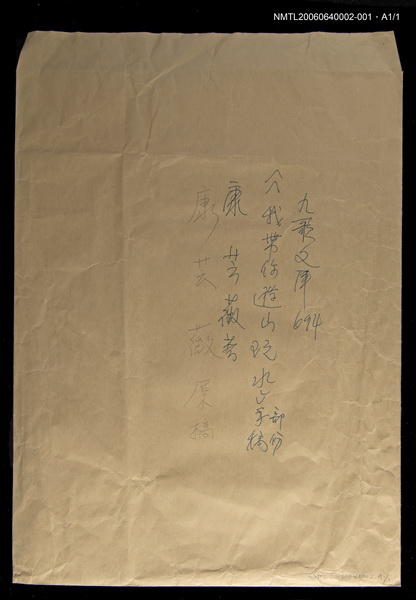 NMTL20060640002-001・A1/1
九歌文庫694
《我帶你遊山玩水》手稿部份
康芸薇著
康芸薇原稿